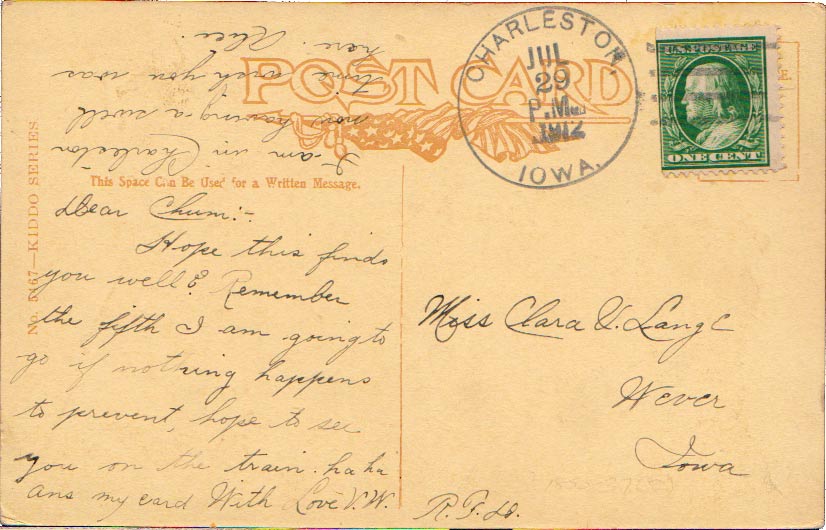 POST CARD
CHARLESTON,
JUL
29
P.M.
1912
IOWA.
U.S. POSTAGE
ONE CENT
No. 5167—KIDDO SERIES
This Space Can Be Used for a Written Message.
Dear Chum:-
Hope this finds
you well & Remember
the fifth I am going to
go if nothing happens
to prevent, hope to see
you on the train. ha ha
ans my card With Love V.W.
I am in Charleston
now having a swell
time wish you was
here.
Miss Clara V. Lange
Wever
Iowa
R.F.D.